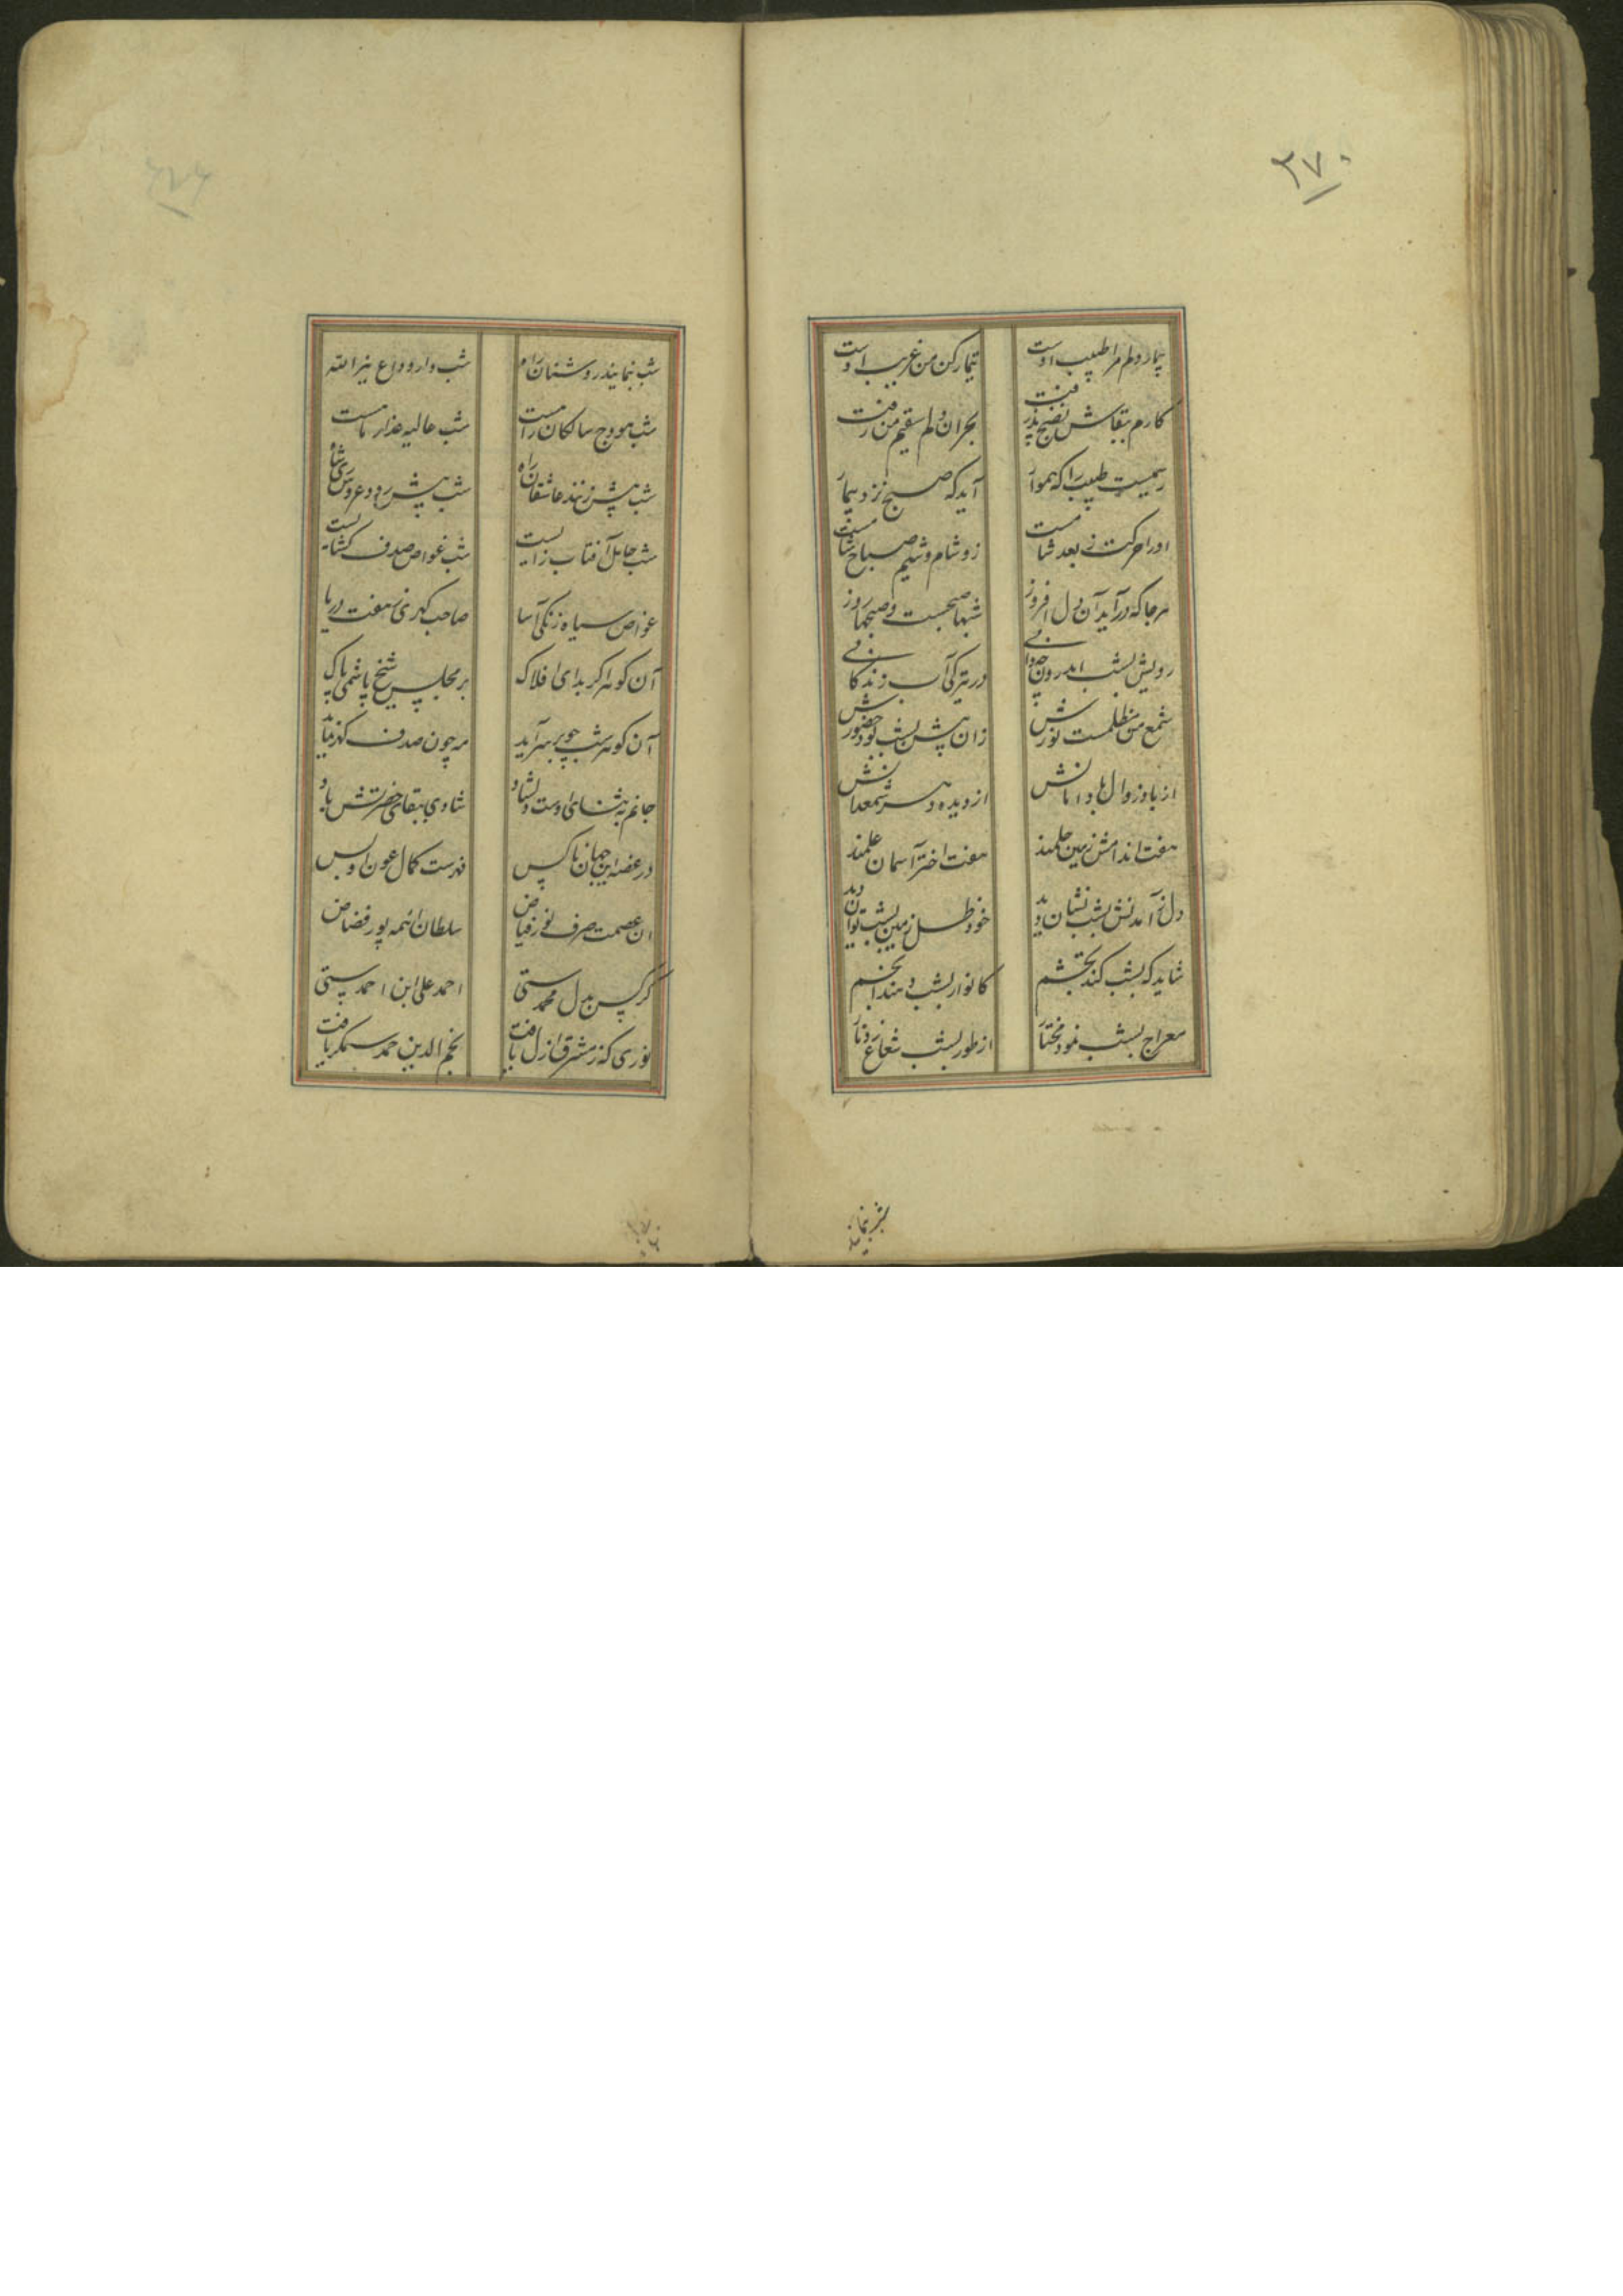 ۳۷۰
بیمار دلم مرا طبیب اوست تیمار کن من غریب اوست
کارم ببقاش نضج پذرفت بحران دلم سقیم من رفت
رسمیست طبیب را که هموار آید که صبح نزد بیمار
او را حرکت ز بعد شامست زو شام وشیم صباح شامست
هرجا که درآید آن دل افروز شبها صبحست و صبحها روز
رویش بشب اندرون چه دانی در تیرگی آب زندگانی
شمع من ظلمتست نورش زان پیش بشب بود حضورش
از باد زوال ها دامانش از دیده و سر شمعدانش
هفت اندامش زمین حلمند هفت اختر آسمان علمند
دل ز آمدنش بشب نشان دید خود ظل زمین بشب توان دید
شاید که بشب کند تجشم کانوار بشب دهند انجم
معراج بشب نمود مختار از طور بشب شعاع زد نار
شب بنمایند روشنان راه شب دارو وداع نیز الله
شب هودج سالکان راهست شب حالیه عذار ماست
شب پیش زنهند عاشقان راه شب پیش رود عروس شاه
شب حامل آفتاب زایست شب غواص صدف کشایست
غواص سیاه زنگی آسا صاحب کهری ز هفت دریا
آن کوهرا کر بدای افلاک بر مجلس شیخ پاشمی پاک
آن کوهر شب چو بر سر آید مه چون صدف کهر نماید
جانم به ثنای اوست دلشاد شادی ببقای حضرتش باد
در غصه این جهان ناکس فهرست کمال عون او بس
آن عصمت صرف نور فیاض سلطان ائمه پور قضاض
کرکس بدل محمدستی احمد علی ابن احمدستی
نوری که ز مشرق ازل یافت نجم الدین احمد سیمکر یافت
شب بنمایند